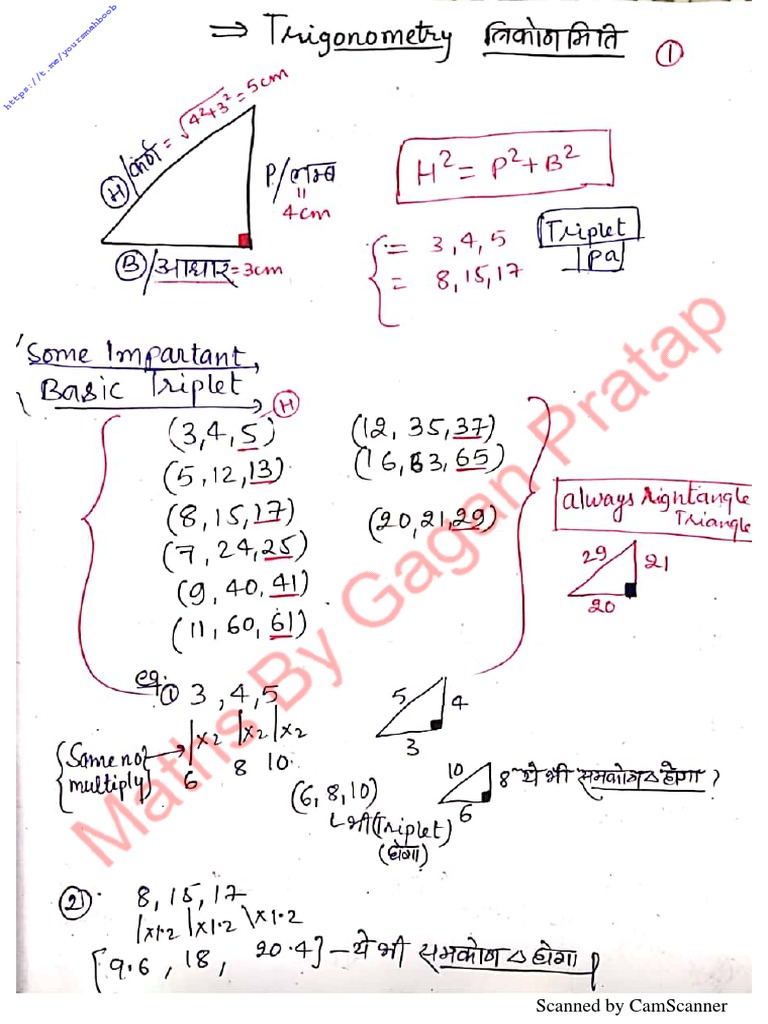 https://t.me/yoursmahboob
⇒ Trigonometry त्रिकोणमिति ①
H/कर्ण = √4²+3² = 5cm
P/लम्ब
=
4cm
B/आधार = 3cm
H² = P² + B²
= 3, 4, 5
= 8, 15, 17
Triplet
Some Impartant
Basic Triplet
H
(3,4, 5)
(5, 12, 13)
(8, 15, 17)
(7, 24, 25)
(9, 40, 41)
(11, 60, 61)
(12, 35, 37)
(16, 63, 65)
(20, 21, 29)
always Rightangle
Triangle
29 21
20
eg. ① 3, 4, 5
×2 ×2 ×2
6 8 10
Same no
multiply
5 4
3
(6, 8, 10)
भी (Triplet)
(होगा)
10 8 ये भी समकोण △ होगा ?
6
② 8, 15, 17
×1.2 ×1.2 ×1.2
[9.6, 18, 20.4] – ये भी समकोण △ होगा
Maths By Gagan Pratap
Scanned by CamScanner